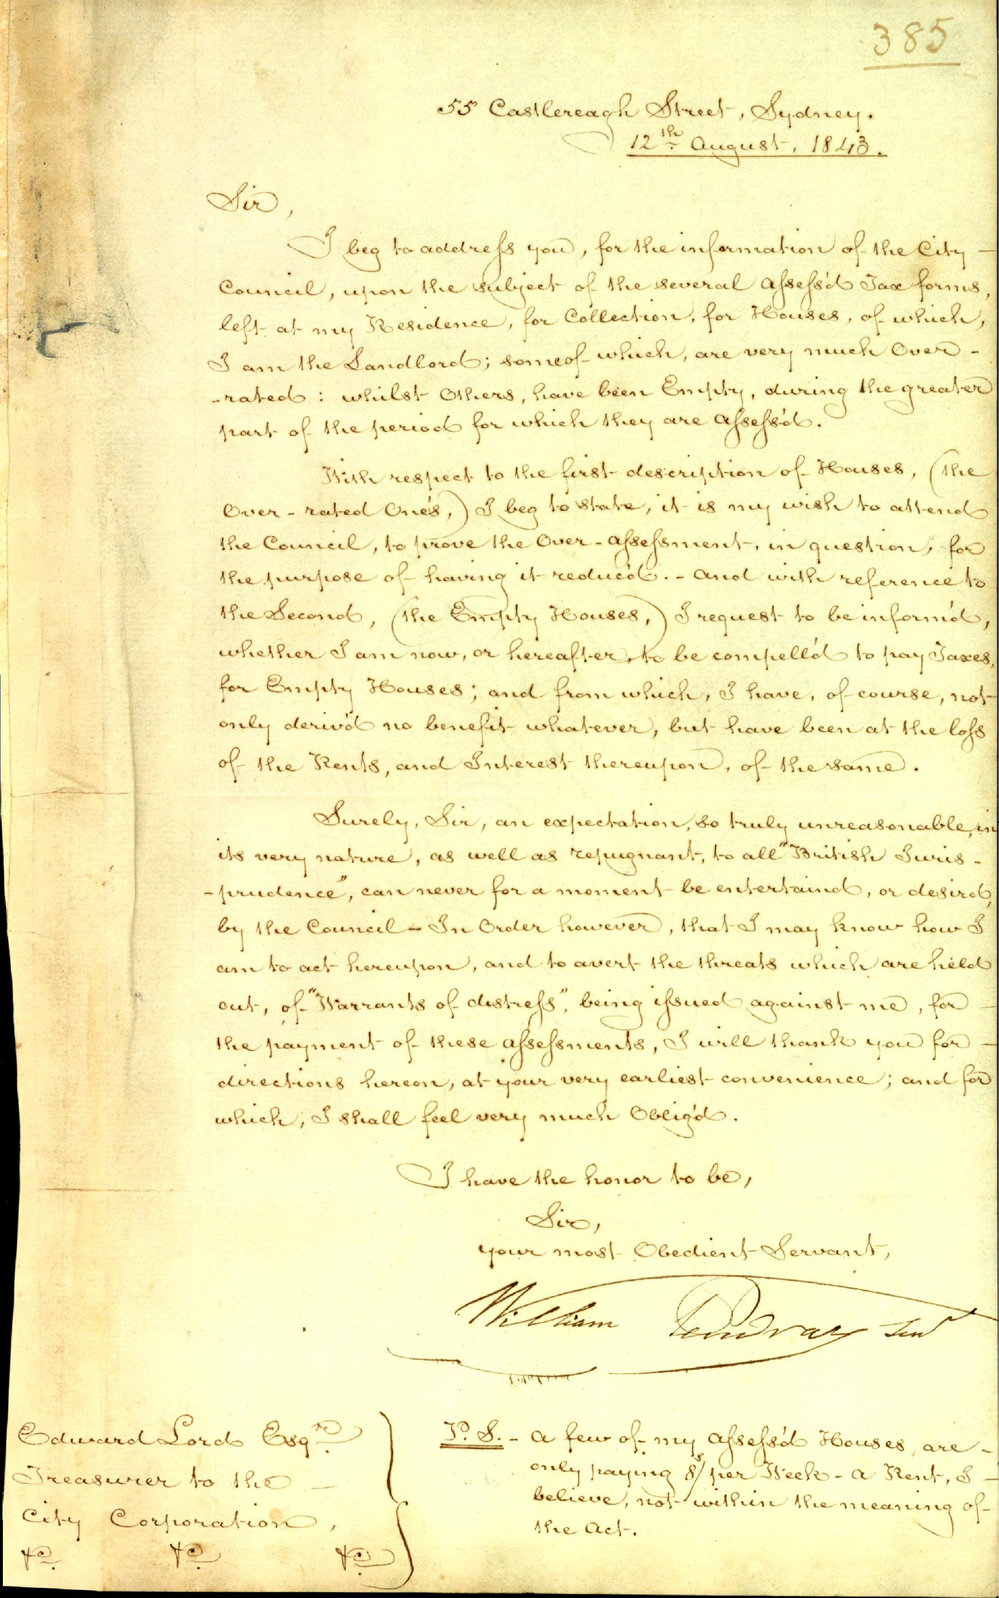 385
55 Castlereagh Street, Sydney.
12th August, 1843.
Sir,
I beg to address you, for the information of the City
Council, upon the subject of the several assess'd Tax forms,
left at my Residence, for Collection, for Houses, of which,
I am the Landlord; some of which, are very much Over-
-rated: whilst Others, have been Empty, during the greater
part of the period for which they are assess'd.
With respect to the first description of Houses, (the
Over-rated One's,) I beg to state, it is my wish to attend
the Council, to prove the Over-assessment, in question, for
the purpose of having it reduc'd. - and with reference to
the Second, (the Empty Houses,) I request to be inform'd,
whether I am now, or hereafter, to be compell'd to pay Taxes,
for Empty Houses; and from which, I have, of course, not
only deriv'd no benefit whatever, but have been at the loss
of the Rents, and Interest thereupon, of the same.
Surely, Sir, an expectation, so truly unreasonable, in
its very nature, as well as repugnant, to all "British Juris-
-prudence", can never for a moment be entertain'd, or desir'd,
by the Council - In Order however, that I may know how I
am to act hereupon, and to avert the threats which are held
out, of "Warrants of distress", being issued against me, for
the payment of these assessments, I will thank you for
directions hereon, at your very earliest convenience; and for
which, I shall feel very much Oblig'd.
I have the honor to be,
Sir,
your most Obedient Servant,
William
Edward Lord Esqre
Treasurer to the
City Corporation,
&c. &c. &c.
P.S. - A few of my assess'd Houses, are
only paying 8/ per Week - a Rent, I
believe, not within the meaning of
the Act.